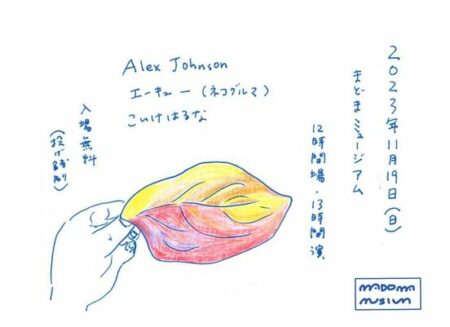 2023年11月19日(日)
まどまミュージアム
12時開場・13時開演
Alex Johnson
エーキュー(ネコグルマ)
こいけはるな
入場無料
(投げ銭制)
MADOMA
MUSIUM